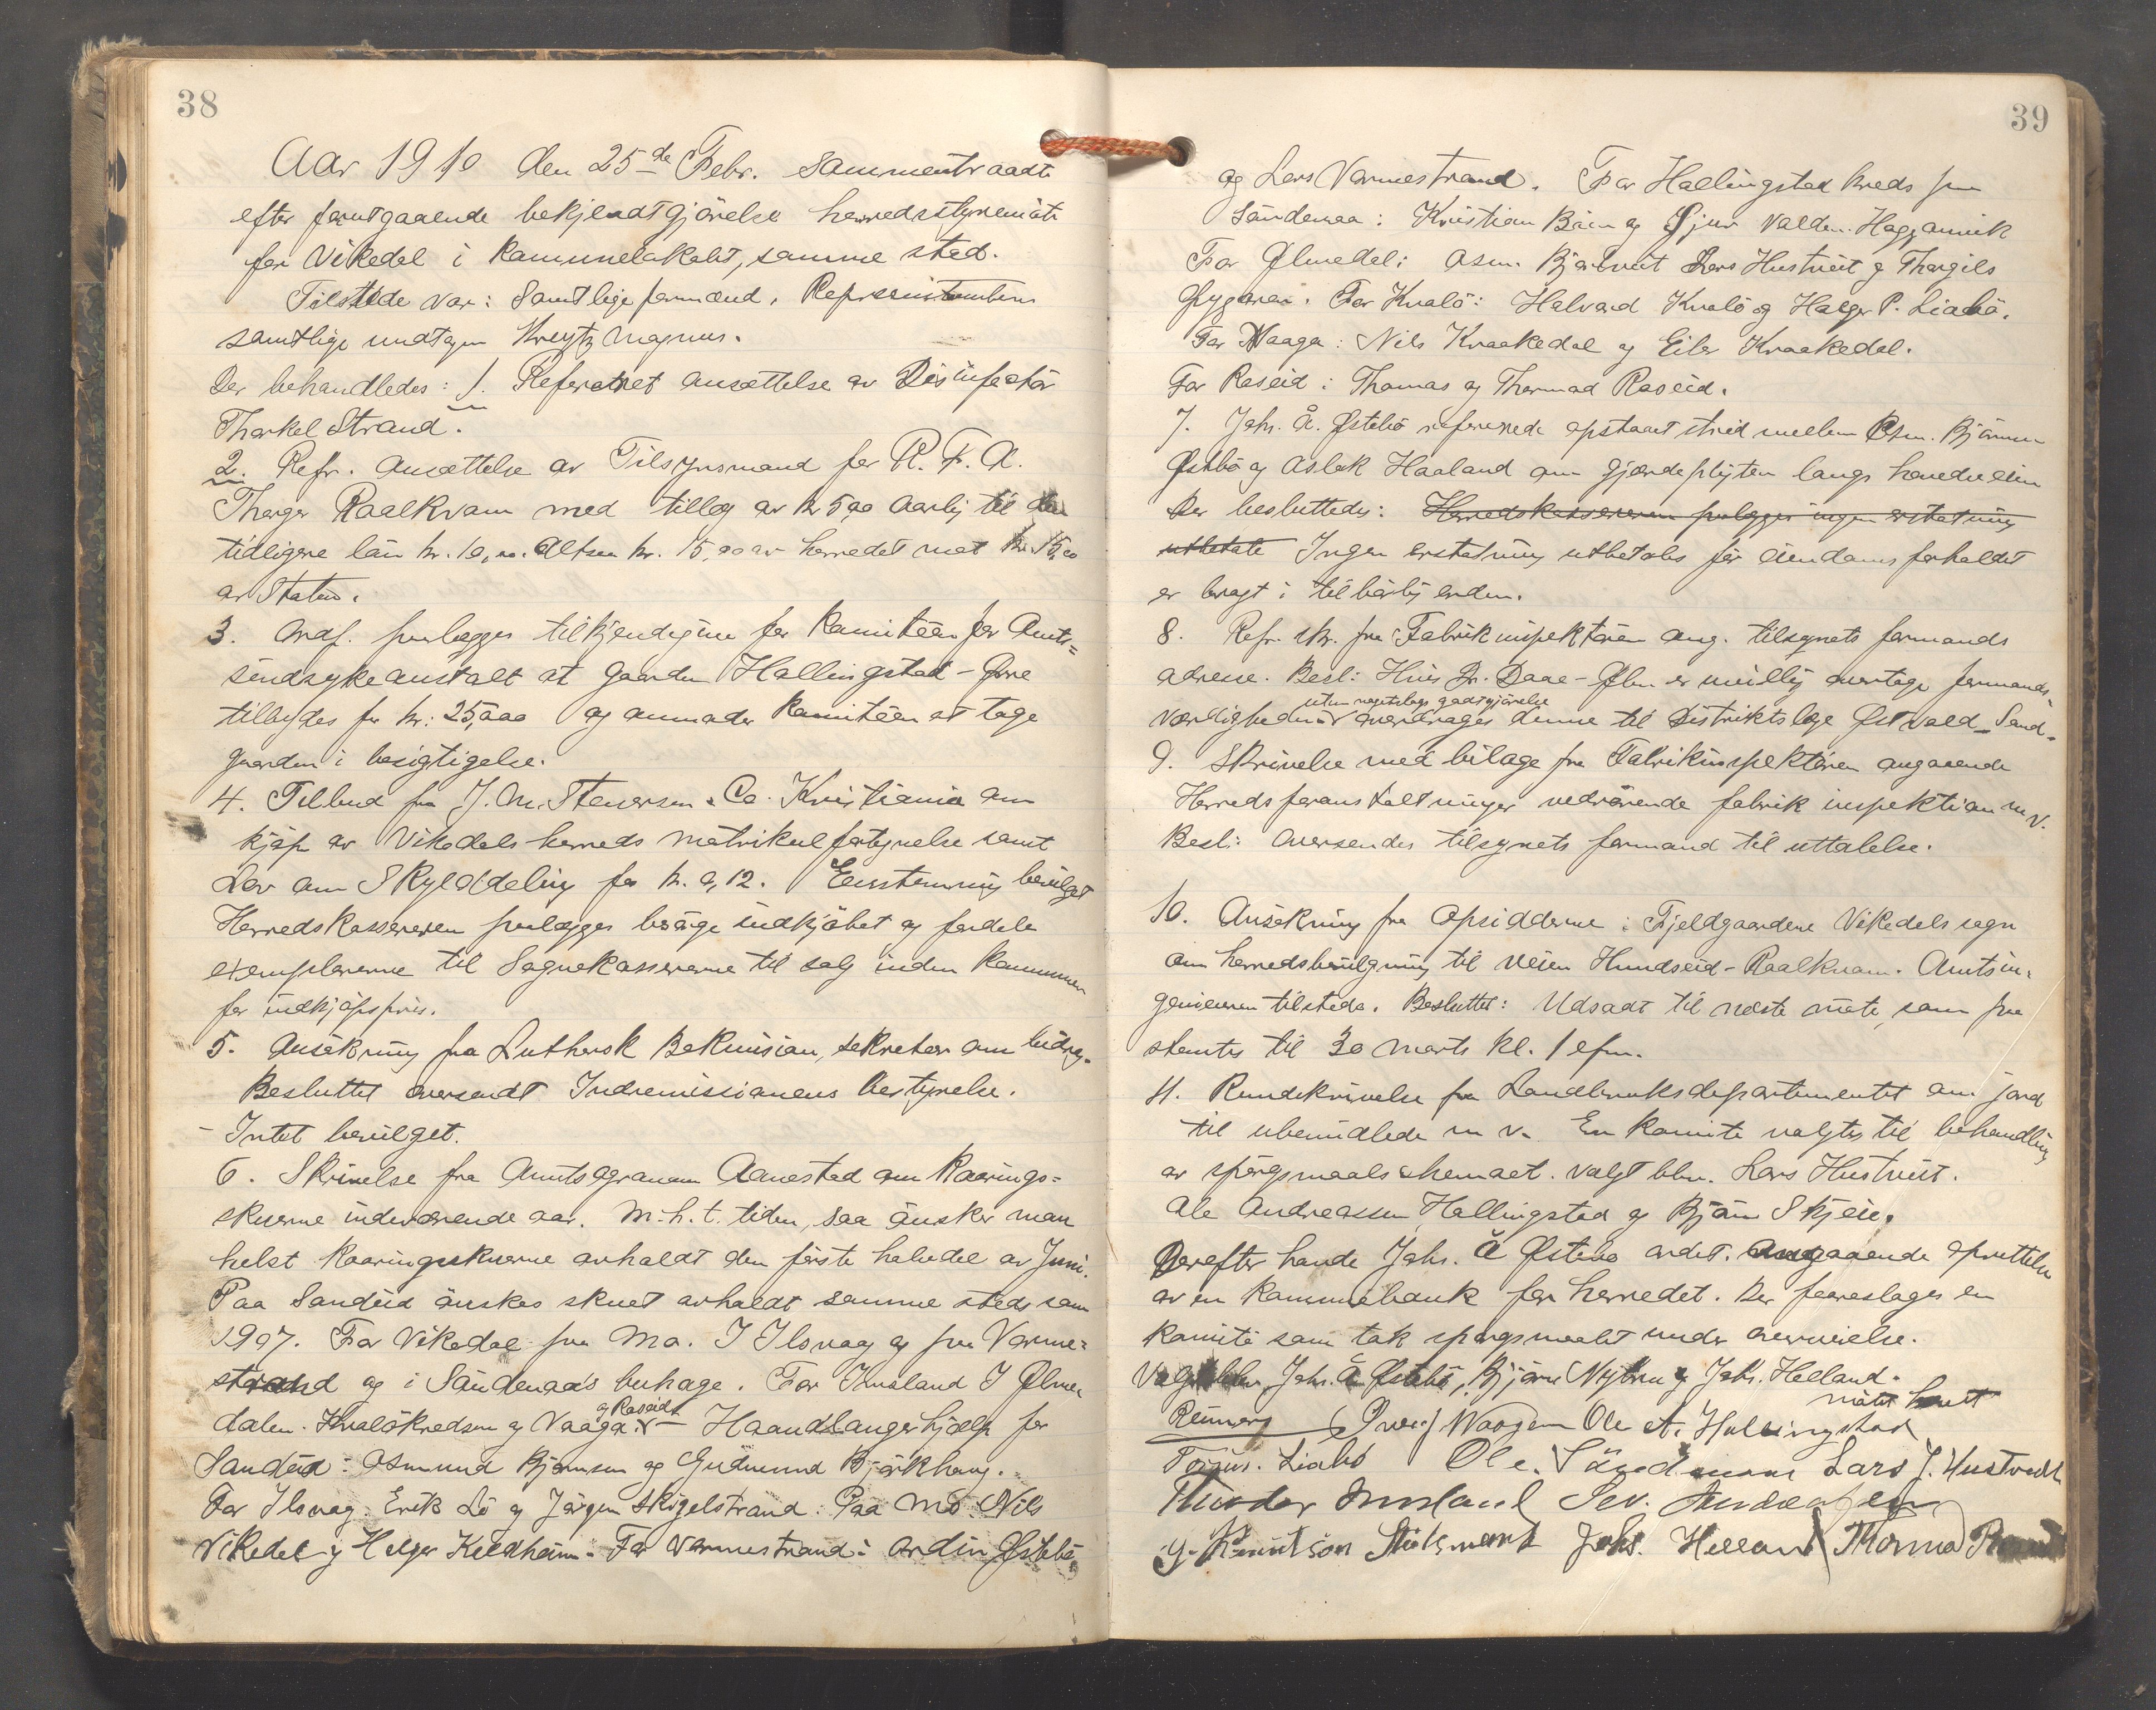 38
Aar 1910 den 25de Febr. sammentraadte
efter forutgaaende bekjendtgjörelse herredsstyremöte
for Vikedal i kommunelokalet, samme sted.
Tilstede var: Samtlige formænd, Repræsentanter
samtlige undtagen Kreytz Magnus.
Der behandledes: 1. Referertes ansættelse av Desinfektör
Thorkel Strand.
2. Refr. Ansættelse av Tilsynsmand for R. F. A.
Thorger Raalkvam med tillæg av kr 5,00 aarlig til den
tidligere lön kr. 10,00. Altsaa kr. 15,00 av herredet mot kr. 15,00
av Staten.
3. Ordf. paalægges tilkjendegive for komitéen for Amts=
sindsykeanstalt at gaarden Hallingstad - Øvre
tilbydes for kr: 25,000 og anmoder komitéen at tage
gaarden i besigtigelse.
4. Tilbud fra J. M. Stenersen & Co. Kristiania om
kjöp av Vikedals herreds matrikul fortegnelse samt
Lov om Skylddeling for kr. 0,12. Enstemmig bevilget
Herredskassereren paalægges besörge indkjöbet og fordele
exemplarerne til Sognekassererne til salg inden kommunen
for indkjöpspris.
5. Ansökning fra Luthersk Bokmision, sekretær om bidrag.
Besluttet oversendt Indremissionens Bestyrelse.
- Intet bevilget.
6. Skrivelse fra Amtsagronom Aanestad om Kaarings=
skuerne indeværende aar. M. h. t. tiden, saa önsker man
helst kaaringsskuerne avholdt den förste halvdel av Juni.
Paa Sandeid önskes skuet avholdt samme sted som
1907. For Vikedal paa Mo. I Ilsvag og paa Varme=
strand og i Söndenaas buhage. For Imsland I Ølme
dalen. Kvalökredsen og Vaaga. og Raseid - Haandlangerhjælp for
Sandeid: Osmund Bjørnsen og Gudmund Björkhaug.
For Ilsvag: Erik Lö og Jörgen Skigelstrand. Paa Mo: Nils
Vikedal og Helge Kaldheim. For Varmestrand: Ordin Østebö
39
og Lars Varmestrand. For Hallingstad kreds paa
Söndenaa: Kristian Böen og Gjur Valdem. Hagganvik
For Ølmedal: Osm. Bjørtveit Lars Hustveit og Thorgils
Øygaren. For Kvalö: Halvard Kvalö og Holger P. Liabö.
For Vaaga: Nils Kraakedal og Eiler Kraakedal.
For Raseid: Thomas og Thormod Raseid.
7. Johs. Å. Østebö refererede opstaaet strid mellem Osm. Björnsen
Østebö og Aslak Haaland om gjærdepligten langs hovedveien
Der besluttedes: Herredskassereren paalægges ingen erstatning
utbetale Ingen erstatning utbetales för eiendomsforholdet
er bragt i tilbörlig orden.
8. Refr. skr. fra Fabrikinspektören ang. tilsynets formands
adresse. Besl: Hvis Dr. Daae - Ølen er uvillig overtage formands-
værdigheden uten vegtslags godtgjörelse overdrages denne til Distriktslæge Østvold - Sand-
9. Skrivelse med bilage fra Fabrikinspektören angaaende
Herredsforanstaltninger vedrörende fabrikinspektion m. v.
Besl: Oversendes tilsynets formand til uttalelse.
10. Ansökning fra Opsidderne i Fjeldgaardene Vikedals sogn
om herredsbevilgning til veien Hundseid - Raalkvam. Amtsin-
geniøren tilstede. Besluttet: Udsadt til næste möte, som paa
stemtes til 30 marts kl. 1 efm.
11. Rundskrivelse fra Landbruksdepartementet om jord
til ubemidlede m v. En komite valgtes til behandling
av spörgsmaalsskemaet. Valgt blev. Lars Hustveit.
Ole Andreassen Hallingstad og Björn Skjeie.
Derefter havde Johs. Å Østebö ordet. Angaaende oprettelse
av en kommunebank for herredet. Der foreslages en
komité som tok spörgsmaalet under overveielse.
Valgt blev Johs. Å Østebö, Björn Nybru og Johs. Helland.
Mötet hævet
Reimers Ole A. Hallingstad
Liabö Ole Söndenaa Lars J. Hustvedt
Imsland Sev. Andreassen
G. Knutson Johs. Helland Thormod